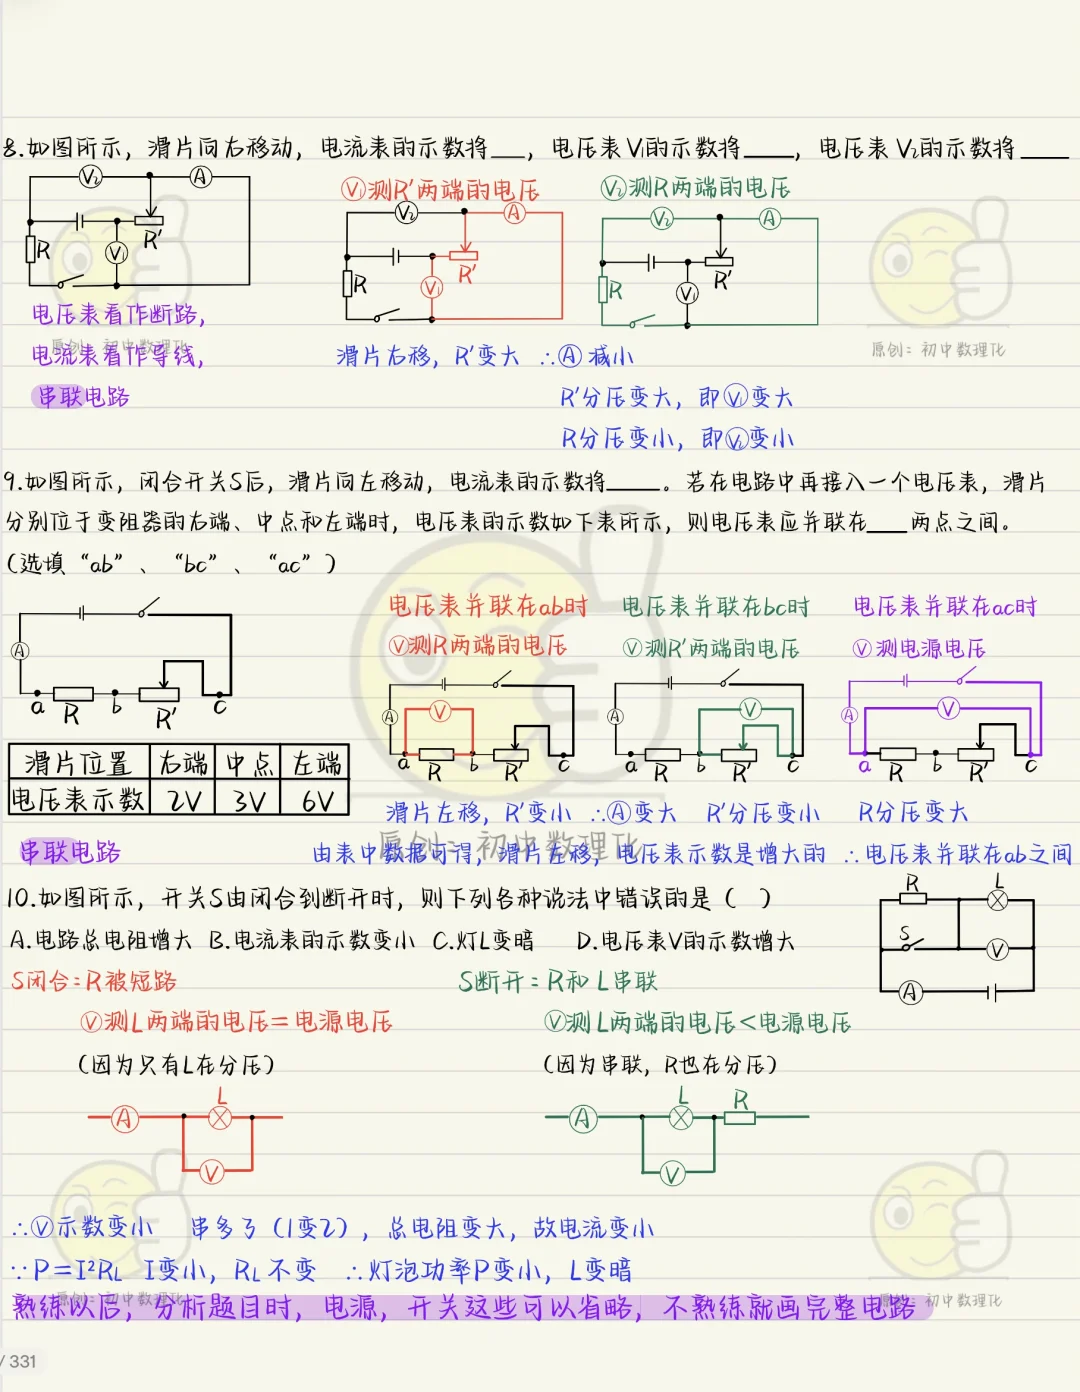 8.如图所示，滑片向右移动，电流表的示数将___，电压表V₁的示数将____，电压表V₂的示数将____
V₂ A
V₁测R'两端的电压
V₂测R两端的电压
R V₁ R'
V₂ A R V₁ R'
V₂ A R V₁ R'
电压表看作断路，
电流表看作导线，
串联电路
滑片右移，R'变大 ∴Ⓐ减小
R'分压变大，即V₁变大
R分压变小，即V₂变小
原创：初中数理化
原创：初中数理化
9.如图所示，闭合开关S后，滑片向左移动，电流表的示数将____。若在电路中再接入一个电压表，滑片
分别位于变阻器的右端、中点和左端时，电压表的示数如下表所示，则电压表应并联在___两点之间。
(选填“ab”、“bc”、“ac”)
A a R b R' c
电压表并联在ab时
Ⓥ测R两端的电压
A V a R b R' c
电压表并联在bc时
Ⓥ测R'两端的电压
A V a R b R' c
电压表并联在ac时
Ⓥ测电源电压
A V a R b R' c
滑片位置 右端 中点 左端
电压表示数 2V 3V 6V
滑片左移，R'变小 ∴Ⓐ变大 R'分压变小 R分压变大
原创：初中数理化
串联电路
由表中数据可得，滑片左移，电压表示数是增大的 ∴电压表并联在ab之间
10.如图所示，开关S由闭合到断开时，则下列各种说法中错误的是（ ）
A.电路总电阻增大 B.电流表的示数变小 C.灯L变暗 D.电压表V的示数增大
R L S V A
S闭合：R被短路
Ⓥ测L两端的电压=电源电压
(因为只有L在分压)
A L V
S断开：R和L串联
Ⓥ测L两端的电压<电源电压
(因为串联，R也在分压)
A L R V
∴Ⓥ示数变小 串多了(1变2)，总电阻变大，故电流变小
∵P=I²RL I变小，RL不变 ∴灯泡功率P变小，L变暗
熟练以后，分析题目时，电源，开关这些可以省略，不熟练就画完整电路
原创：初中数理化
原创：初中数理化
/ 331